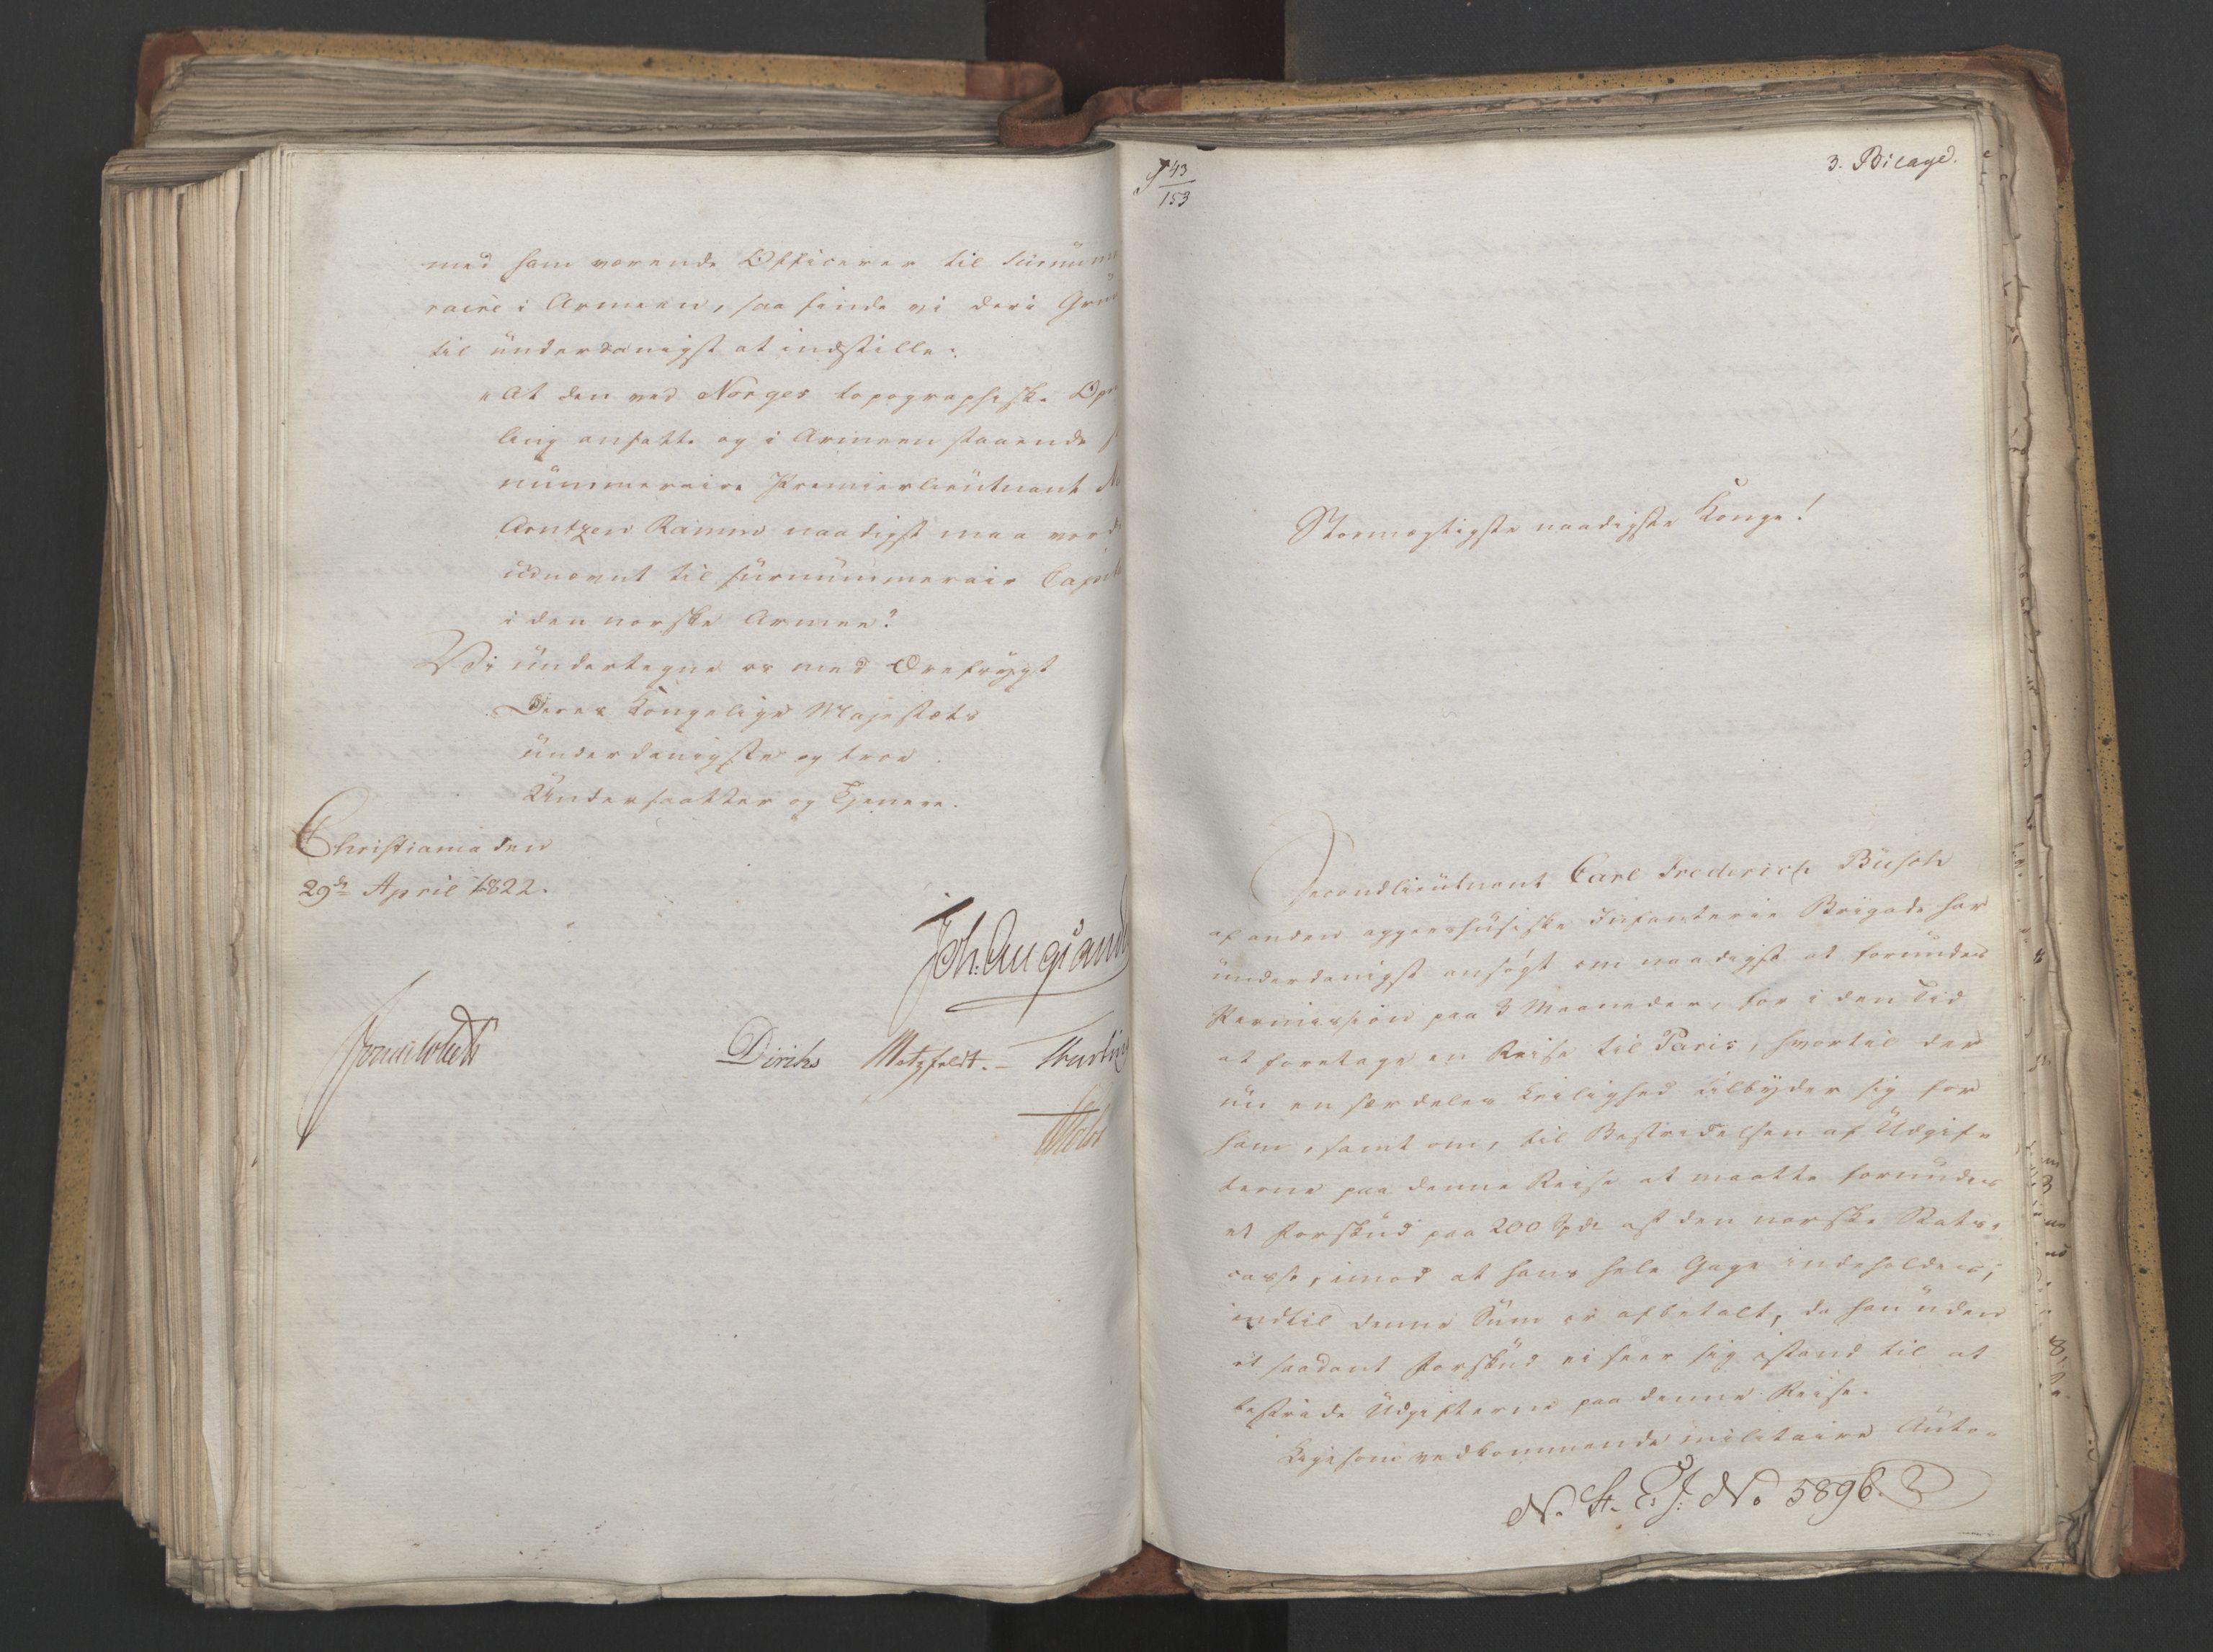 med ham værende Officerer til surnüm
raire i Armeen, saa finde vi deri Grü
til ünderdanigst at indstille:
"At den ved Norges topographiske Op
ling ansatte og i Armeen staaende
nümmeraire Premierlieutnant
Arntzen Ramm naadigst maa vord
üdnævnt til sürnümmerair Capit
i den norske Armee?
Vi ündertegne os med Ærefrygt
Deres Kongelige Majestæts
ünderdanigste og troe
Ündersaatter og Tjenere.
Christiania den
29de April 1822.
Joh. Aug. Sand
Sommerhielm
Diriks Motzfeldt. Treschow
Holst
J 43
153
3. Bilage.
Stormægtigste naadigste Konge!
Secondlieutnant Carl Frederich Büsch
af anden aggershüsiske Infanterie Brigade har
ünderdanigst ansøgt om naadigst at forundes
Permission paa 3 Maaneder, for i den Tid
at foretage en Reise til Paris, hvortil der
nü en særdeles Leilighed tilbyder sig for
ham, samt om, til Bestridelsen af Üdgif-
terne paa denne Reise at maatte forundes
et Forskud paa 200 Spd af den norske Stats-
casse, imod at hans hele Gage indeholdes,
indtil denne Süm er afbetalt, da han üden
et saadant Forskud ei seer sig istand til at
bestride Üdgifterne paa denne Reise.
Ligesom vedkommende militaire Auto-
N. St. S. J. No 5896.